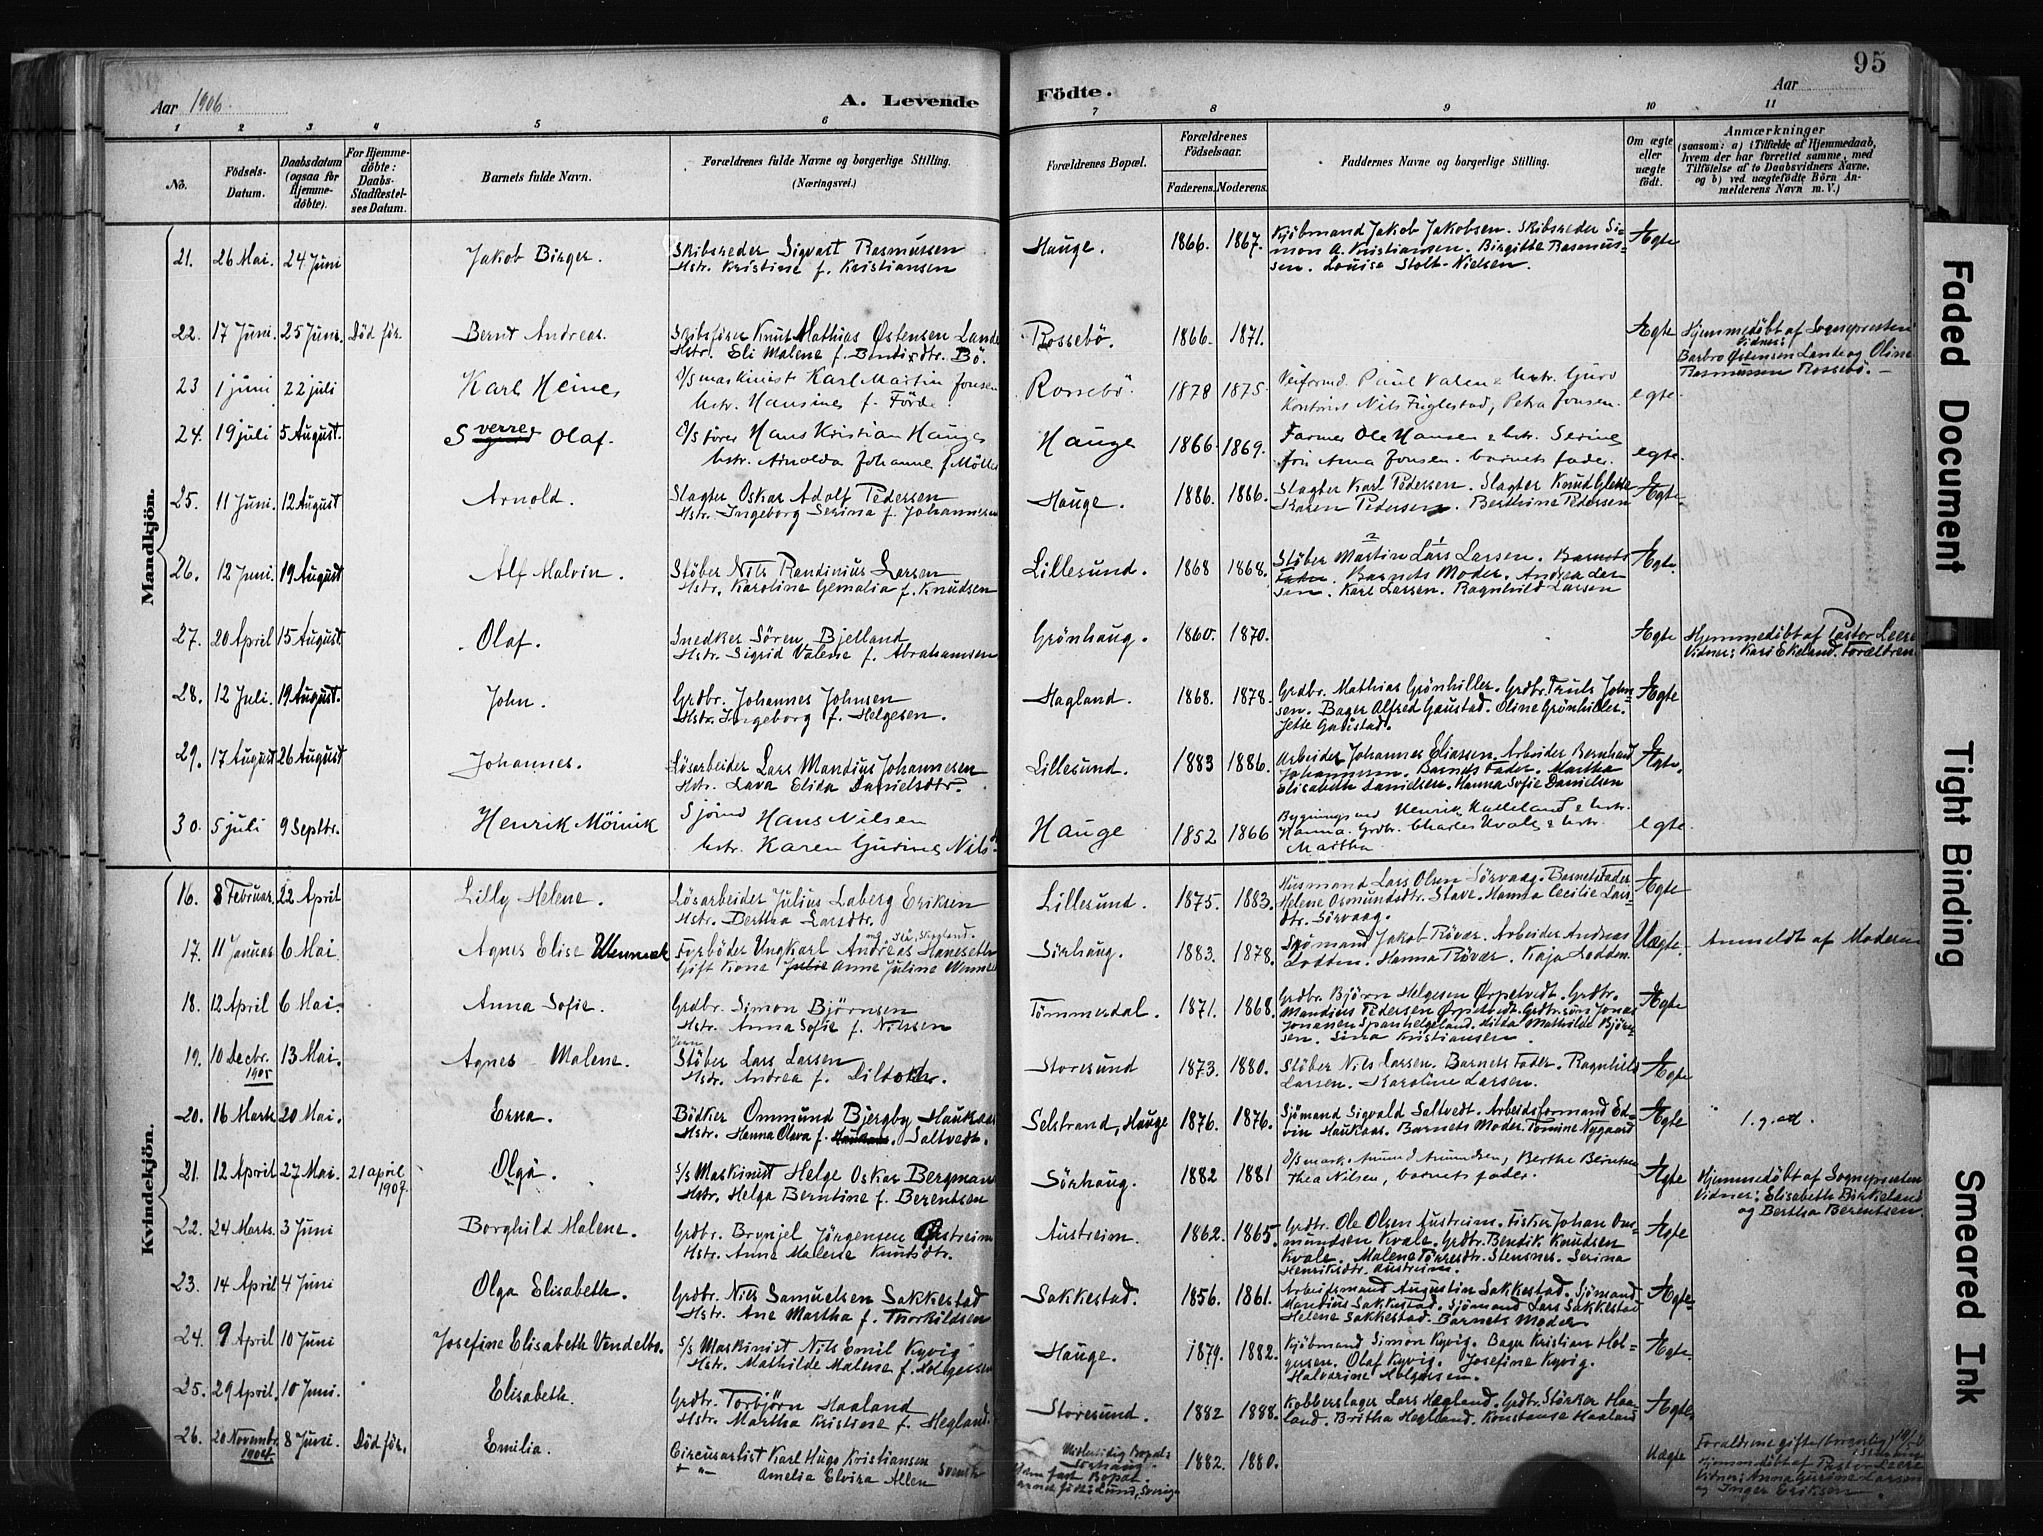 Aar 1906.
A. Levende
Födte.
Aar
95
1 2 3 4 5 6 7 8 9 10 11
No.
Födsels-
Datum.
Daabsdatum
(ogsaa for
Hjemme-
döbte).
For Hjemme-
döbte:
Daabs-
Stadfæstel-
ses Datum.
Barnets fulde Navn.
Forældrenes fulde Navne og borgerlige Stilling.
(Næringsvei.)
Forældrenes Bopæl.
Forældrenes
Födselsaar.
Faderens. Moderens.
Faddernes Navne og borgerlige Stilling.
Om ægte
eller
uægte
födt.
Anmærkninger
(saasom: a) i Tilfælde af Hjemmedaab,
hvem der har forrettet samme, med
Tilföielse af to Daabsvidners Navne,
og b) ved uægtefödte Börn An-
melderens Navn m. V.)
Mandkjön.
21. 26 Mai. 24 Juni Jakob Birger. Skibsreder Sigvart Rasmussen
Hstr. Kristine f. Kristiansen
Hauge. 1866. 1867. Kjöbmand Jakob Jakobsen. Skibsreder Si-
mon A. Kristiansen. Birgitte Rasmus-
sen. Louise Stolt-Nielsen.
Ægte
22. 17 Juni. 25 Juni. Död för. Bernt Andreas. Skibsförer Knut Mathias Østensen Lande
Hstr. Eli Malene f. Bendixdtr. Bö.
Rossebö. 1866. 1871. Ægte Hjemmedöbt af Sognepresten
Vidner:
Barbro Østensen Lande og Oline
Rasmussen Rossebö.
23 1 juni 22 juli Karl Heines D/S maskinist Karl Martin Jonsen
hstr. Hansines f. Förde
Rossebö. 1878 1875. Veiformd. Paul Valen & hstr. Guro
Kontorist Nils Fuglestad, Petra Jonsen. egte.
24. 19 juli 5 August. Sverre Olaf. D/S förer Hans Kristian Hauges
hstr. Arnolda Johanne f Möller
Hauge 1866 1869. Farmer Ole Hansen & hstr. Serine
frk Anna Jonsen. barnets fader. egte.
25. 11 Juni. 12 August Arnold. Slagter Oskar Adolf Pedersen
Hstr. Ingeborg Serina f. Johannesen
Hauge. 1886. 1886. Slagter Karl Pedersen. Slagter Knud Glette
Karen Pedersen. Berthine Pedersen Ægte
26. 12 Juni. 19 August Alf Malvin. Stöber Nils Randinius Larsen
Hstr. Karoline Gemalia f. Knudsen
Lillesund. 1868 1868. Stöber Martin Lars Larsen. Barnets
Fader. Barnets Moder. Andrea Lar-
sen. Karl Larsen. Ragnhild Larsen
Ægte.
27. 20 April 15 August. Olaf. Snedker Sören Bjelland
Hstr. Sigrid Valene f. Abrahamsen
Grönhaug. 1860. 1870. Ægte Hjemmedöbt af Pastor Leere
Vidner: Kari Ekeland. Forældren
28. 12 Juli. 19 August. John. Grdbr. Johannes Johnsen
Hstr. Ingeborg f. Helgesen.
Hagland. 1868. 1878. Grdbr. Mathias Grönhiller. Grdbr. Truls John-
sen. Bager Alfred Gaustad. Oline Grönhiller.
Jette Gaustad.
Ægte
29. 17 August 26 August Johannes. Lösarbeider Lars Mandius Johannesen
Hstr. Lava Elida Danielsdtr.
Lillesund. 1883 1886. Arbeider Johannes Eliassen. Arbeider Bernhard
Johannesen. Barnets Fader. Martha
Elisabeth Danielsen. Hanna Sofie Danielsen
Ægte.
30. 5 juli 9 Septbr. Henrik Möinik Sjömd Hans Nilsen
hstr. Karen Gurines Nils
Hauge 1852 1866 Bygningsmd Henrik Kalleland & hstr.
Hanna. Grdbr. Charles Kvale & hstr.
Martha
egte.
Kvindekjön.
16. 8 Februar. 22 April Lilly Helene. Lösarbeider Julius Laberg Eriksen
Hstr. Bertha Larsdtr.
Lillesund. 1875. 1883. Husmand Lars Olsen Sörvaag. Barnets Fader
Helene Osmundsdtr. Stave. Hanna Cecilie Lars-
dtr. Sörvaag.
Ægte
17. 11 Januar 6 Mai Agnes Elise Wennevik Fyrböder Ungkarl Andreas Haneseth
Gift Kone Julie Anne Juline Wennev
Sörhaug. 1883. 1878. Sjömand Jakob Rövær. Arbeider Andreas
Lodden. Hanna Rövær. Kaja Lodden
Uægte. Anmeldt af Moderen
18. 12 April 6 Mai. Anna Sofie. Grdbr. Simon Björnsen
Hstr. Anna Sofie f. Nilssen
Tömmerdal. 1871. 1868. Grdbr. Björn Helgesen Ørpetvedt. Grdbr.
Mandius Pedersen Ørpetvedt. Grdbr. sön Jonas
Jonassen Spanhelgeland. Hilda Mathilde Björn-
sen. Sina Kristiansen.
Ægte
19. 10 Decbr.
1905
13 Mai. Agnes Malene. Stöber Lars Larsen
Hstr. Andrea f.
Storesund 1873. 1880. Stöber Nils Larsen. Barnets Fader. Ragnhild
Larsen. Karoline Larsen.
Ægte
20. 16 Marts 20 Mai. Erna. Bödker Ommund Bjergby Haukaas
Hstr. Hanna Olava f. Saltvedt.
Selstrand, Hauge 1876. 1876. Sjömand Sigvald Saltvedt. Arbeidsformand Ed-
vin Haukaas. Barnets Moder. Tomine Nygaard
Ægte
21. 12 April 27 Mai. 21 april
1907.
Olga. S/S Maskinist Helge Oskar Bergman
Hstr. Helga Berntine f. Berentsen
Sörhaug. 1882 1881 D/S mask. Amund Amundsen, Berthe Berntsen
Thea Nilsen, barnets fader.
Ægte Hjemmedöbt af Sognepresten
Vidner: Elisabeth Birkeland
og Bertha Berentsen.
22. 24 Marts. 3 Juni Borghild Malene. Grdbr. Brynjel Jörgensen Østreim
Hstr. Anne Malene Knutsdtr.
Austreim. 1862. 1865. Grdbr. Ole Olsen Austreim. Fisker Johan Om-
mundsen Kvale. Grdbr. Bendik Knudsen
Kvale. Malene Torresdtr. Stensnes. Serina
Henriksdtr. Austreim.
Ægte
23. 14 April 4 Juni Olga Elisabeth. Grdbr. Nils Samuelsen Sakkestad
Hstr. Ane Martha f. Thorkildsen
Sakkestad. 1856. 1861. Arbeidsmand Augustin Sakkestad. Sjömand
Mandius Sakkestad. Sjömand Lars Sakkestad
Helene Sakkestad. Barnets Moder
Ægte.
24. 9 April 10 Juni Josefine Elisabeth Vendelbo. S/S Maskinist Nils Emil Kyvig
Hstr. Mathilde Malene f. Holgersen
Hauge. 1879. 1882. Kjöbmand Simon Kyvig. Bager Kristian Hol-
gersen. Olaf Kyvig. Josefine Kyvig.
Halvarine Holgersen.
Ægte.
25. 29 April. 10 Juni. Elisabeth. Grdbr. Torbjörn Haaland
Hstr. Martha Kristine f. Hegland.
Storesund. 1882 1888. Kobberslager Lars Hegland. Grdbr. Störker Haa-
land. Britha Hegland. Konstanse Haaland
Ægte
26. 20 Novembr
1904.
8 Juni. Död för. Emilia. Circusartist Karl Hugo Kristiansen
Amelia Elvira Allen Svensk
Midlertidig Bopæl:
Sörhaug
Uden fast Bopæl.
Barnet föd i Lund, Sverige
1882. 1880. Uægte Forældrene gifte (borgerlig)
Hjemmedöbt af Pastor Leere
Vidner: Anna Gurine Larsen
og Inger Eriksen.
Faded Document
Tight Binding
Smeared Ink